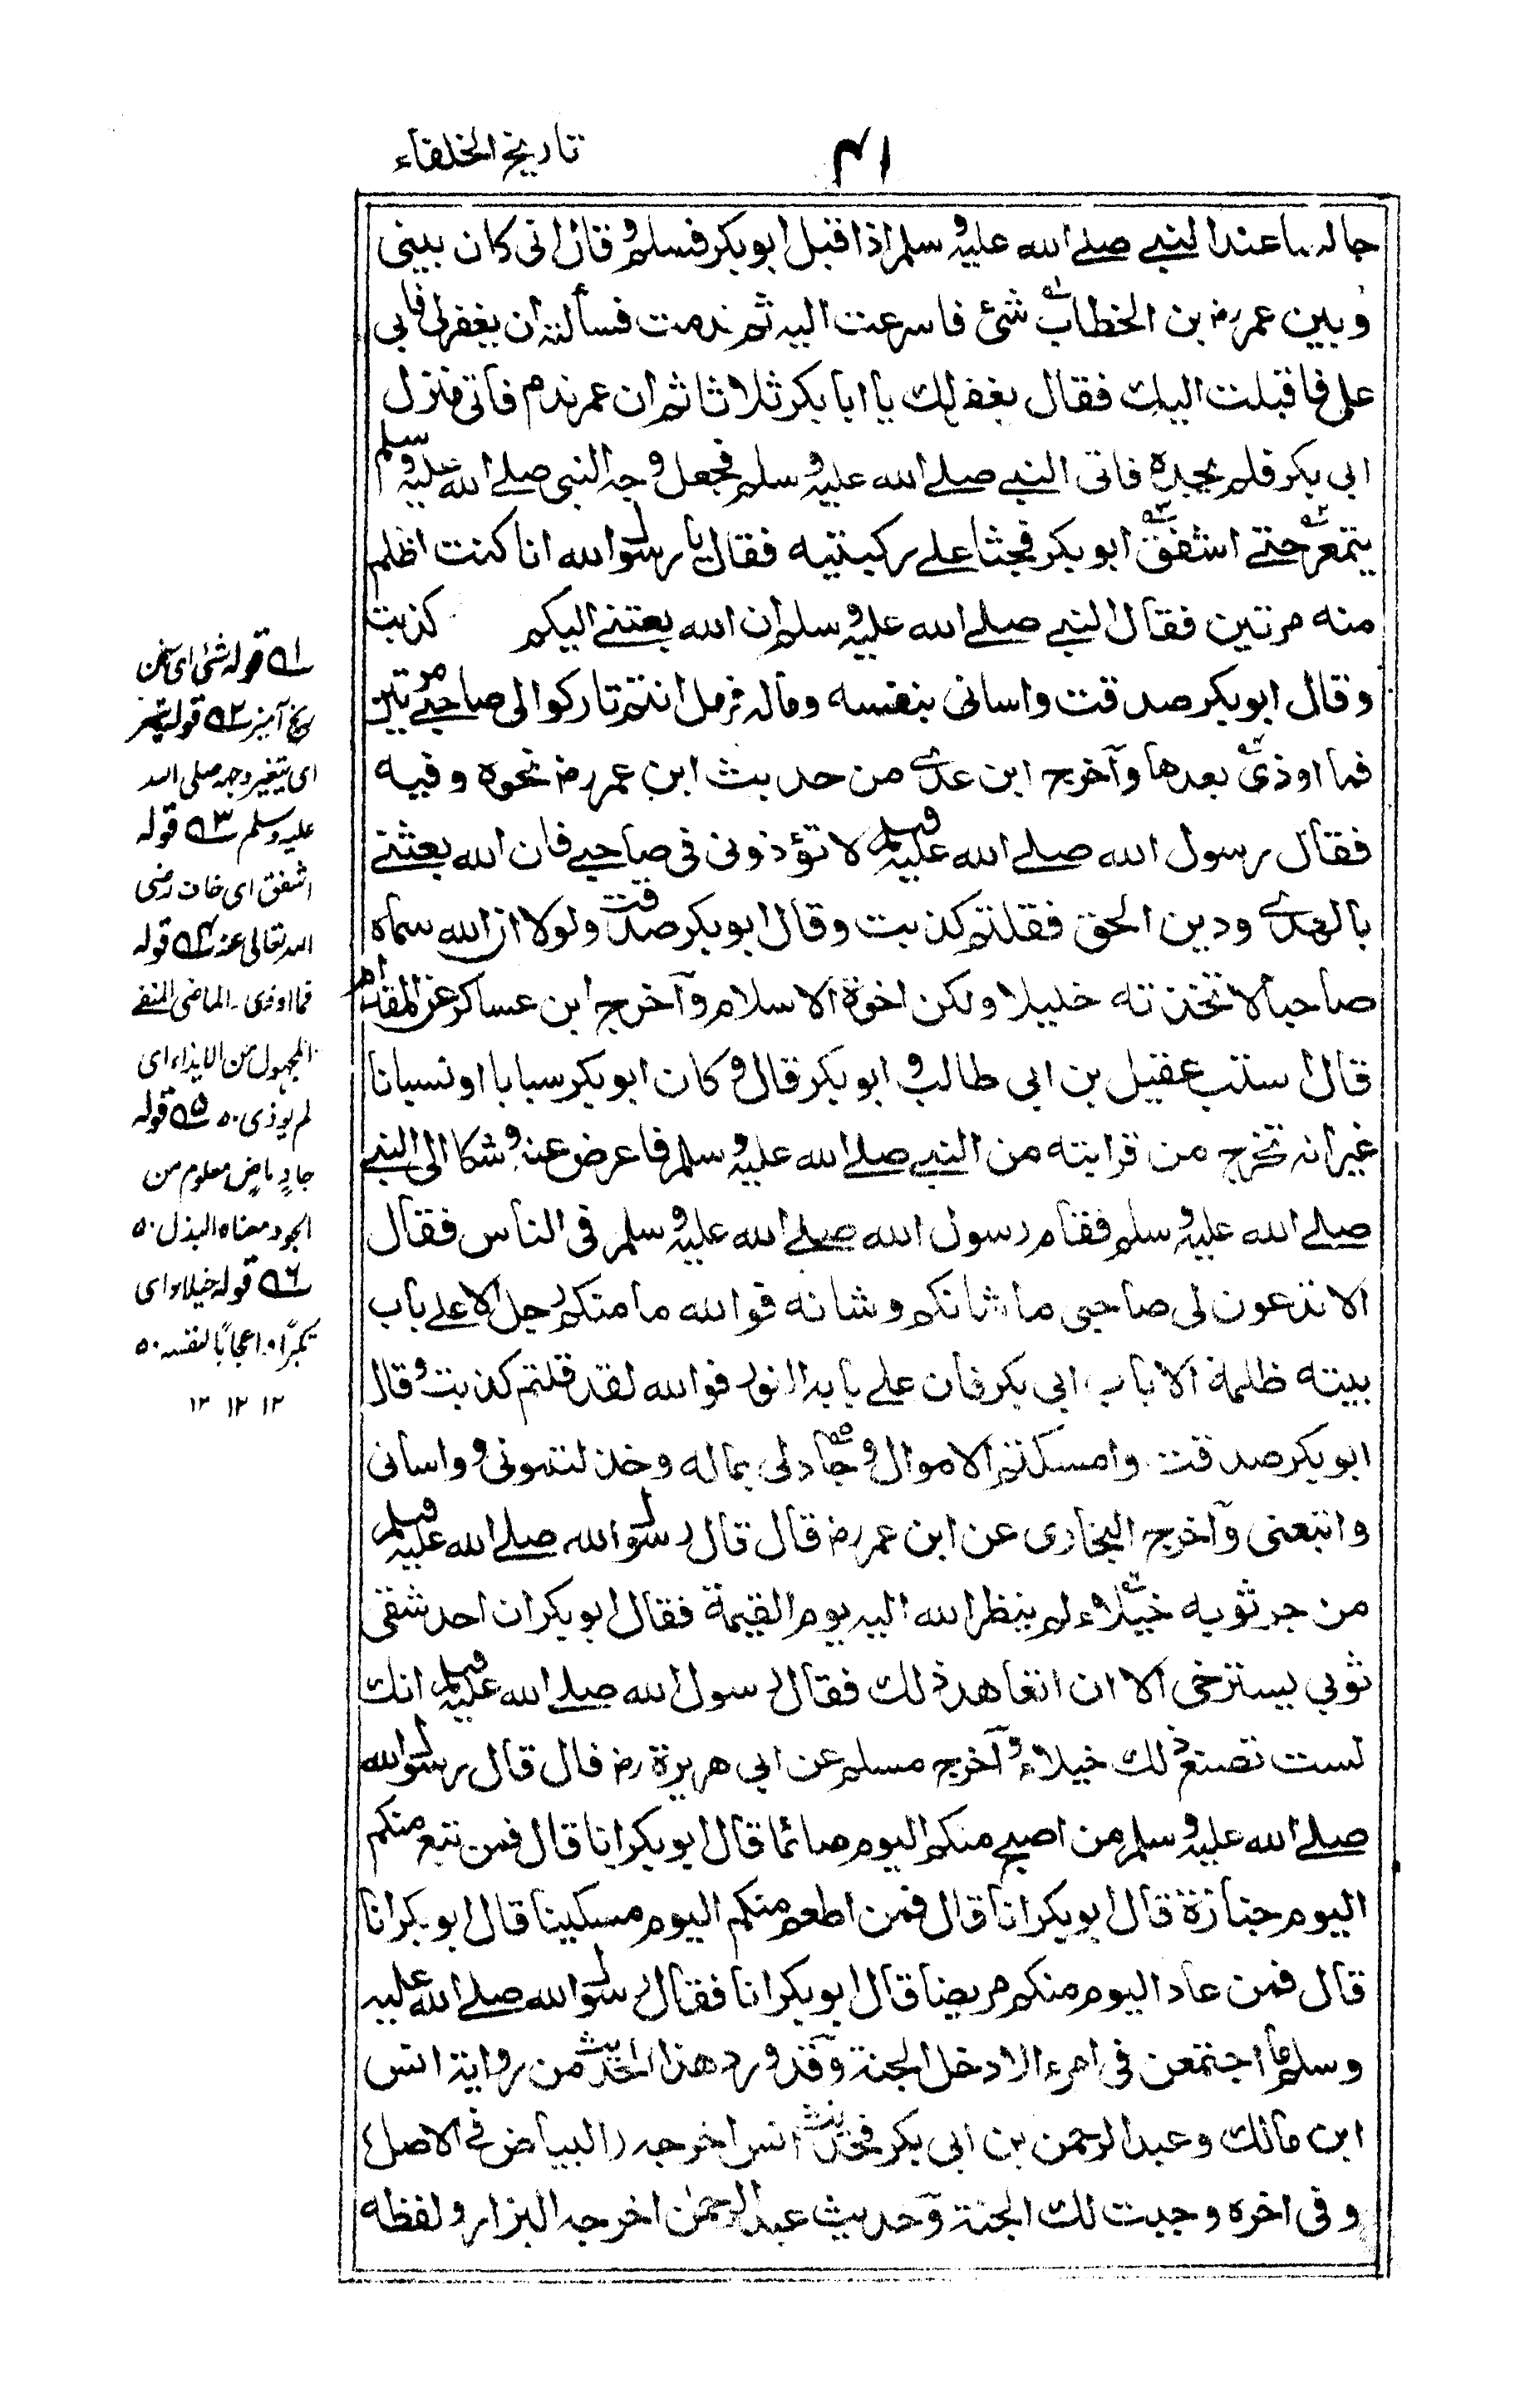 تاريخ الخلفاء
٤١
جالسا عند النبي صلى الله عليه وسلم اذا قبل ابو بكر فسلم وقال انى كان بينى
وبين عمر رض بن الخطاب شئ فاسرعت اليه ثم ندمت فسألته ان يغفر لى فابى
على فاقبلت اليك فقال يغفر لك يا ابا بكر ثلاثا ثم ان عمر ندم فأتى منزل
ابى بكر فلم يجده فاتى النبي صلى الله عليه وسلم فجعل وجه النبى صلى الله عليه وسلم
يتمعر حتى اشفق ابو بكر فجثا على ركبتيه فقال يا رسول الله انا كنت اظلم
منه مرتين فقال النبي صلى الله عليه وسلم ان الله بعثنى اليكم كذبت
وقال ابو بكر صدقت واسانى بنفسه وماله فهل انتم تاركوا لى صاحبى مرتين
فما اوذى بعدها وآخرج ابن عدى من حديث ابن عمر رض نحوه وفيه
فقال رسول الله صلى الله عليه وسلم لا تؤذونى فى صاحبى فان الله بعثنى
بالهدى ودين الحق فقلتم كذبت وقال ابو بكر صدقت ولولا ان الله سماه
صاحبا لا تخذته خليلا ولكن اخوة الاسلام وآخرج ابن عساكر عن المقدام
قال استب عقيل بن ابى طالب وابو بكر قال وكان ابو بكر سبابا او نسبانا
غير انه تخرج من قرابته من النبي صلى الله عليه وسلم فاعرض عنه وشكا الى النبي
صلى الله عليه وسلم فقام رسول الله صلى الله عليه وسلم فى الناس فقال
الا تدعون لى صاحبى ما شانكم وشانه فوالله ما منكم رجل الا على باب
بيته ظلمة الا باب ابى بكر فان على بابه النور فوالله لقد قلتم كذبت وقال
ابو بكر صدقت وامسكتم الاموال وجاد لى بماله وخذلتمونى وواسانى
واتبعنى وآخرج البخارى عن ابن عمر رض قال قال رسول الله صلى الله عليه وسلم
من جر ثوبه خيلاء لم ينظر الله اليه يوم القيمة فقال ابو بكر ان احد شقى
ثوبى يسترخى الا ان اتعاهد ذلك فقال رسول الله صلى الله عليه وسلم انك
لست تصنع ذلك خيلاء وآخرج مسلم عن ابى هريرة رض قال قال رسول الله
صلى الله عليه وسلم من اصبح منكم اليوم صائما قال ابو بكر انا قال فمن تبع منكم
اليوم جنازة قال ابو بكر انا قال فمن اطعم منكم اليوم مسكينا قال ابو بكر انا
قال فمن عاد اليوم منكم مريضا قال ابو بكر انا فقال رسول الله صلى الله عليه
وسلم ما اجتمعن فى امرء الا دخل الجنة وقد ورد هذا الحديث من رواية انس
ابن مالك وعبد الرحمن بن ابى بكر فحديث انس اخرجه (البياض فى الاصل)
وفى اخره وجبت لك الجنة وحديث عبد الرحمن اخرجه البزار ولفظه
١ قوله شئ اى سخن
رنج آميز ٢ قوله يتمعر
اى يتغير وجه صلى الله
عليه وسلم ٣ قوله
اشفق اى خاف رضى
الله تعالى عنه ٤ قوله
فما اوذى ـ الماضى المنفى
المجهول من الايذاء اى
لم يوذى ٥ قوله
جاد ماض معلوم من
الجود معناه البذل
٦ قوله خيلاء اى
تكبرًا واعجابًا لنفسه
١٢ ١٢ ١٢